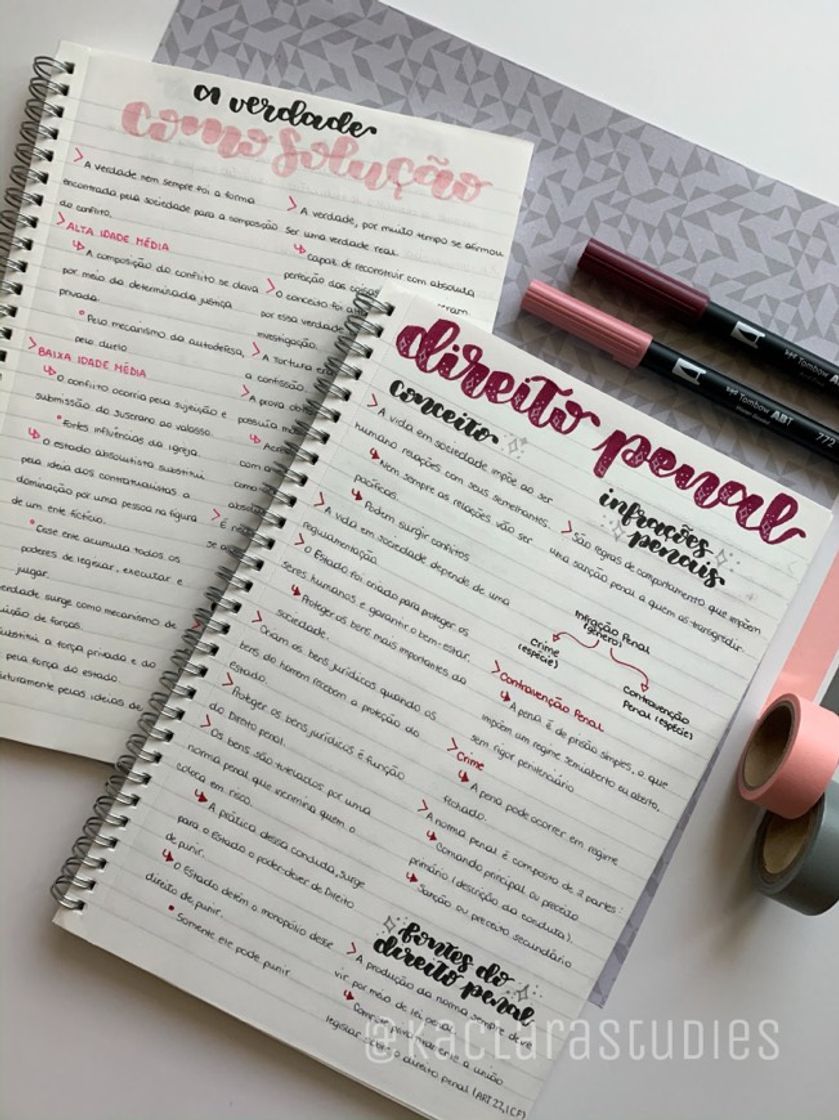 a verdade
como solução
> A verdade nem sempre foi a forma
encontrada pela sociedade para a composição
do conflito.
> ALTA IDADE MÉDIA
↳ A composição do conflito se dava
por meio da determinada justiça
privada.
• Pelo mecanismo da autodefesa,
pelo duelo
> BAIXA IDADE MÉDIA
↳ O conflito ocorria pela sujeição e
submissão do suserano ao vassalo.
• Fortes influências da igreja.
↳ O estado absolutista substitui
pela ideia dos contratualistas a
dominação por uma pessoa na figura
de um ente fictício.
• Esse ente acumula todos os
poderes de legislar, executar e
julgar.
verdade surge como mecanismo de
de forças.
substitui a força privada e do
pela força do estado.
futuramente pelas ideias de
> A verdade, por muito tempo se afirmou
ser uma verdade real.
↳ capaz de reconstruir com absoluta
perfeição das coisas
> O conceito foi
por essa verdade
investigação.
> A tortura era
a confissão.
> A prova
possuía
com a
como
> É
se
direito penal
conceito
> A vida em sociedade impõe ao ser
humano relações com seus semelhantes.
↳ Nem sempre as relações vão ser
pacíficas.
↳ Podem surgir conflitos
> A vida em sociedade depende de uma
regulamentação.
> O Estado foi criado para proteger os
seres humanos e garantir o bem-estar.
↳ Proteger os bens mais importantes da
sociedade.
> Criam os bens jurídicos quando os
bens do homem recebem a proteção do
estado.
> Proteger os bens jurídicos é função
do Direito penal.
> Os bens são tutelados por uma
norma penal que incrimina quem o
coloca em risco.
↳ A prática dessa conduta, surge
para o Estado o poder-dever de Direito
de punir.
↳ O Estado detém o monopólio desse
direito de punir.
• Somente ele pode punir.
infrações
penais
> São regras de comportamento que impõem
uma sanção penal a quem as transgredir.
Infração Penal
(gênero)
Crime
(espécie)
Contravenção
Penal (espécie)
> Contravenção Penal
↳ A pena é de prisão simples, o que
impõem um regime semiaberto ou aberto,
sem rigor penitenciário
> Crime
↳ A pena pode ocorrer em regime
fechado.
> A norma penal é composta de 2 partes:
↳ Comando principal ou preceito
primário (descrição da conduta).
↳ Sanção ou preceito secundário
fontes do
direito penal
> A produção da norma sempre deve
vir por meio de lei penal.
↳ Compete privativamente a união
legislar sobre o direito penal (ART 22, I CF)
Tombow ABT
Tombow ABT
772
@kaclarastudies